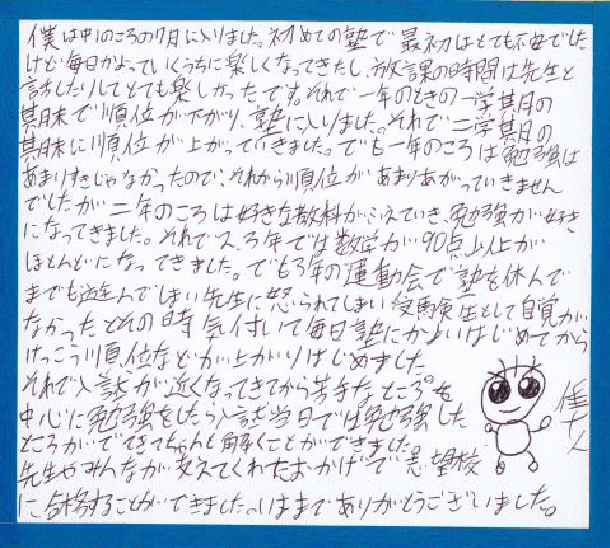 僕は中1のころの7月に入りました。初めての塾で最初はとても不安でした
けど毎日かよっていくうちに楽しくなってきたし、放課の時間は先生と
話したりしてとても楽しかったです。それで一年のときの一学期の
期末で順位が下がり、塾に入りました。それで二学期の
期末に順位が上がっていきました。でも一年のころは勉強は
あまりすきじゃなかったので、それから順位があまりあがっていきません
でしたが二年のころは好きな教科がふえていき、勉強が好き
になってきました。それで3年では数学が90点以上が
ほとんどになってきました。でも3年の運動会で塾を休んで
までも遊んでしまい先生に怒られてしまい受験生として自覚が
なかったとその時気付いて毎日塾にかよいはじめてから
けっこう順位などが上がりはじめました
それで入試が近くなってきてから苦手なところを
中心に勉強をしたら入試当日では勉強した
ところがでてきてちゃんと解くことができました。
先生やみんなが支えてくれたおかげで志望校
に合格することができました。いままでありがとうございました。